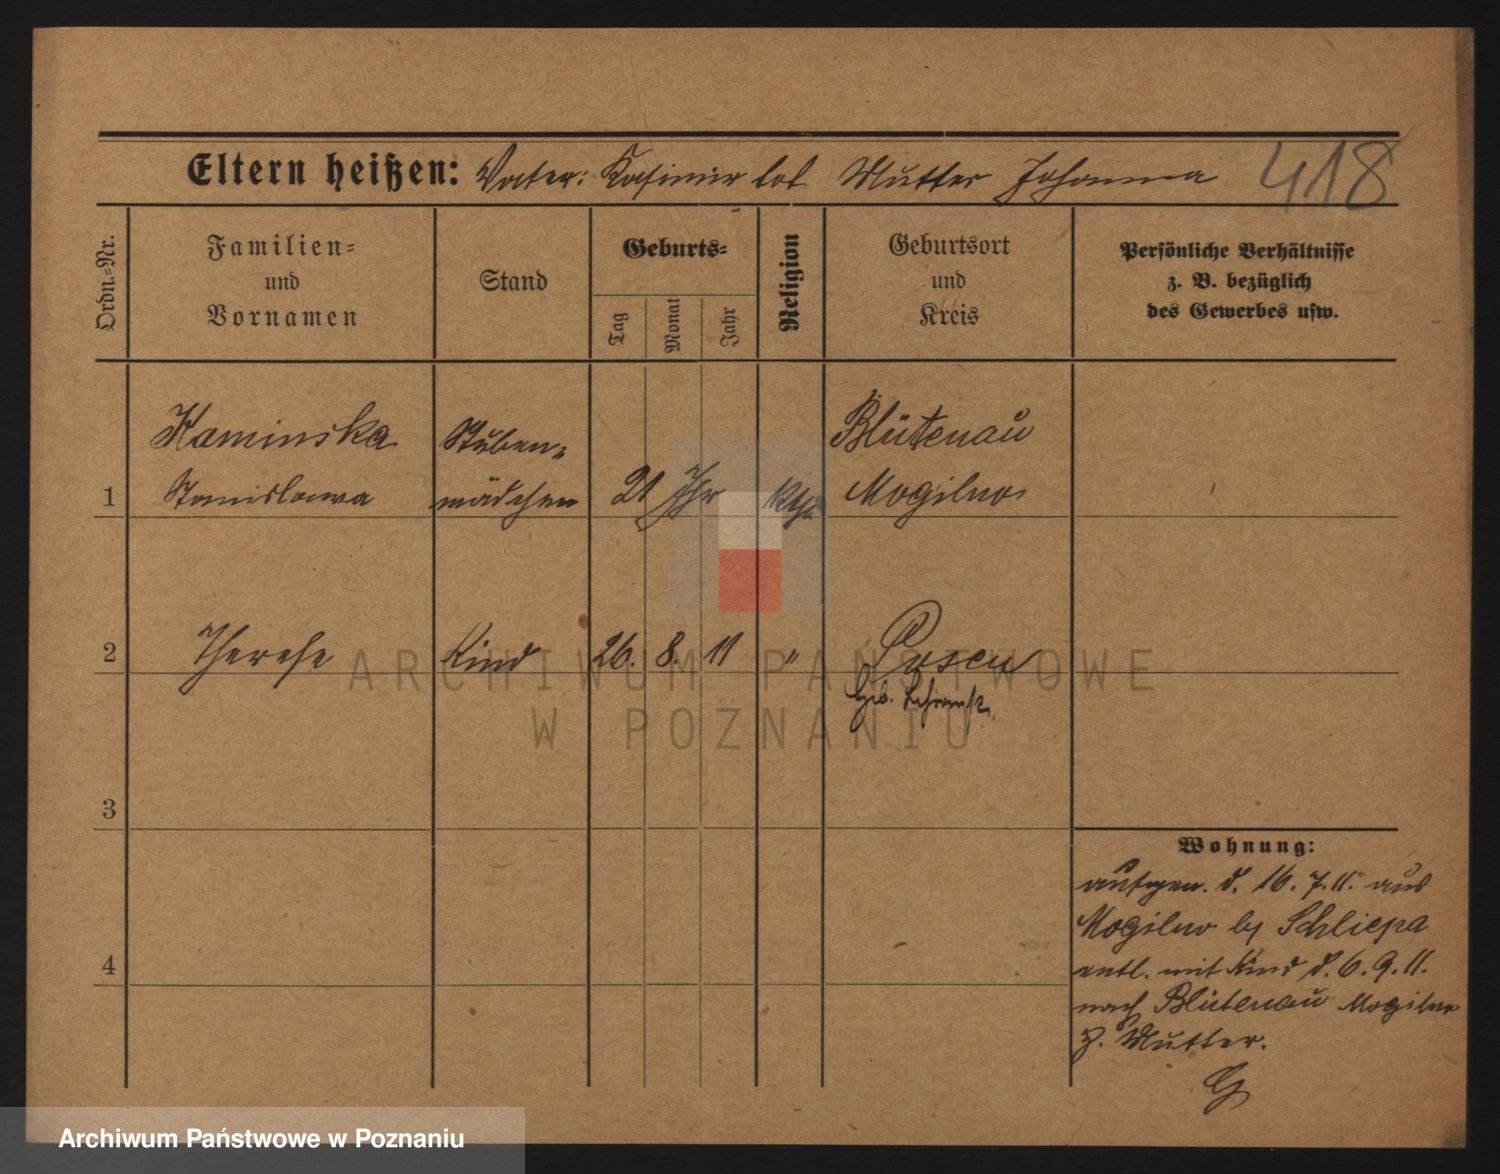 Eltern heißen: Vater: Kasimir tot Mutter Johanna 418
Ordn.=Nr.
Familien=
und
Vornamen
Stand
Geburts=
Tag
Monat
Jahr
Religion
Geburtsort
und
Kreis
Persönliche Verhältnisse
z. B. bezüglich
des Gewerbes usw.
Kaminska
Stuben=
Blütenau
1 Stanislawa mädchen 21 Jhr kth. Mogilno
2 Therese Kind 26. 8. 11 " Posen
Geb.
3
4
Wohnung:
aufgen. d. 16.7.11. aus
Mogilno by Schliepa
entl. mit Kind d. 6.9.11.
nach Blütenau Mogilno
z. Mutter.
G
ARCHIWUM PAŃSTWOWE
W POZNANIU
Archiwum Państwowe w Poznaniu